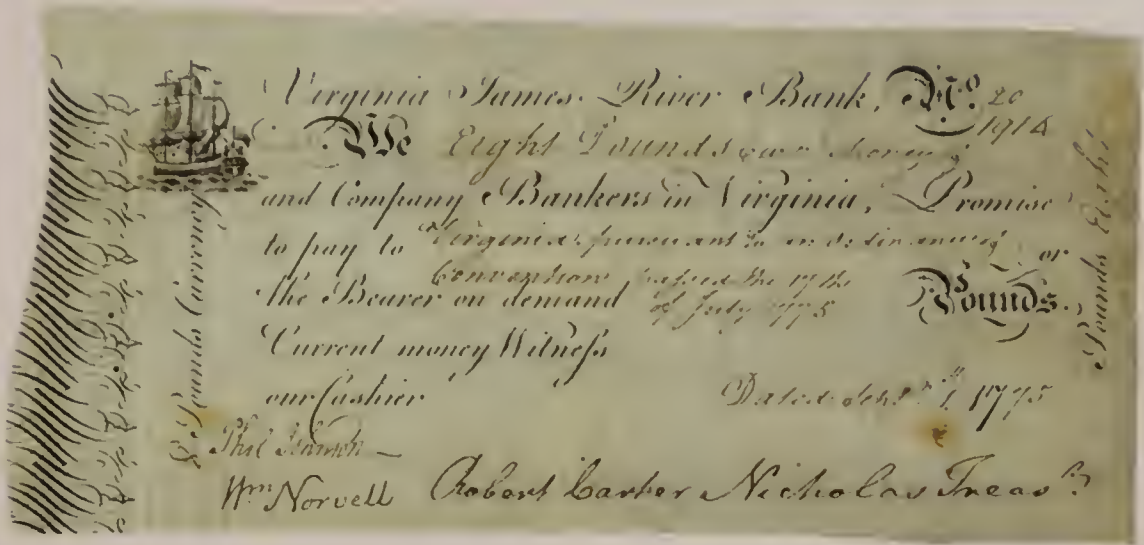 Virginia James River Bank, No. 20
1914
We Eight Pounds
and Company Bankers in Virginia, Promise
to pay to Virginia pursuant to an ordinance of or
Convention passed the 17th
the Bearer on demand of July 1775 Pounds.
Current money Witness
our Cashier Dated Sepr. 1775
Phil
Wm Norvell Robert Carter Nicholas Treasr.
8 Pounds Currency
Pounds Eight